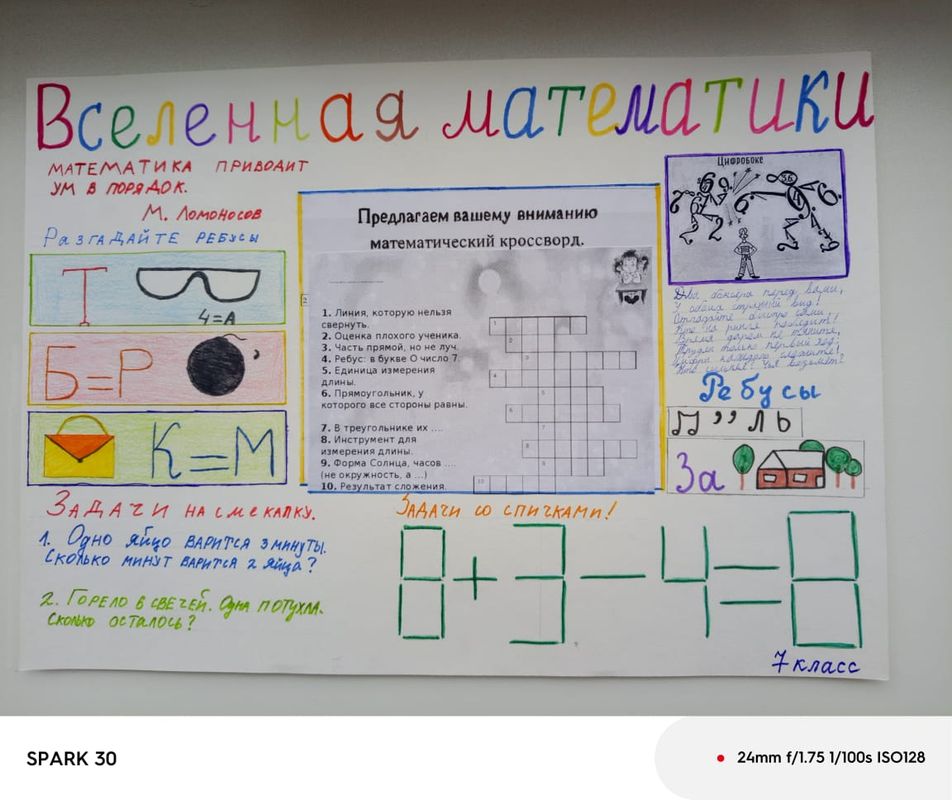 Вселенная математики
МАТЕМАТИКА ПРИВОДИТ
УМ В ПОРЯДОК.
М. Ломоносов
РАЗГАДАЙТЕ РЕБУСЫ
Т
4=А
Б=Р
К=М
Предлагаем вашему вниманию
математический кроссворд.
1. Линия, которую нельзя
свернуть.
2. Оценка плохого ученика.
3. Часть прямой, но не луч.
4. Ребус: в букве О число 7.
5. Единица измерения
длины.
6. Прямоугольник, у
которого все стороны равны.
7. В треугольнике их ....
8. Инструмент для
измерения длины.
9. Форма Солнца, часов ....
(не окружность, а ...)
10. Результат сложения.
Цифробокс
Два боксера перед вами,
У обоих страшный вид!
Отгадайте быстро сами:
Кто на ринге победит?
Время даром не теряйте,
только первый ход:
Цифры каждого сложите!
Кто сильнее? Чья возьмет?
Ребусы
П ,, ЛЬ
За
ЗАДАЧИ НА СМЕКАЛКУ.
1. Одно яйцо ВАРИТСЯ 3 минуты.
Сколько минут ВАРИТСЯ 2 яйца?
2. Горело 8 свечей. Одна потухла.
Сколько осталось?
ЗАДАЧИ СО СПИЧКАМИ!
8+3-4=8
7 класс
SPARK 30
24mm f/1.75 1/100s ISO128